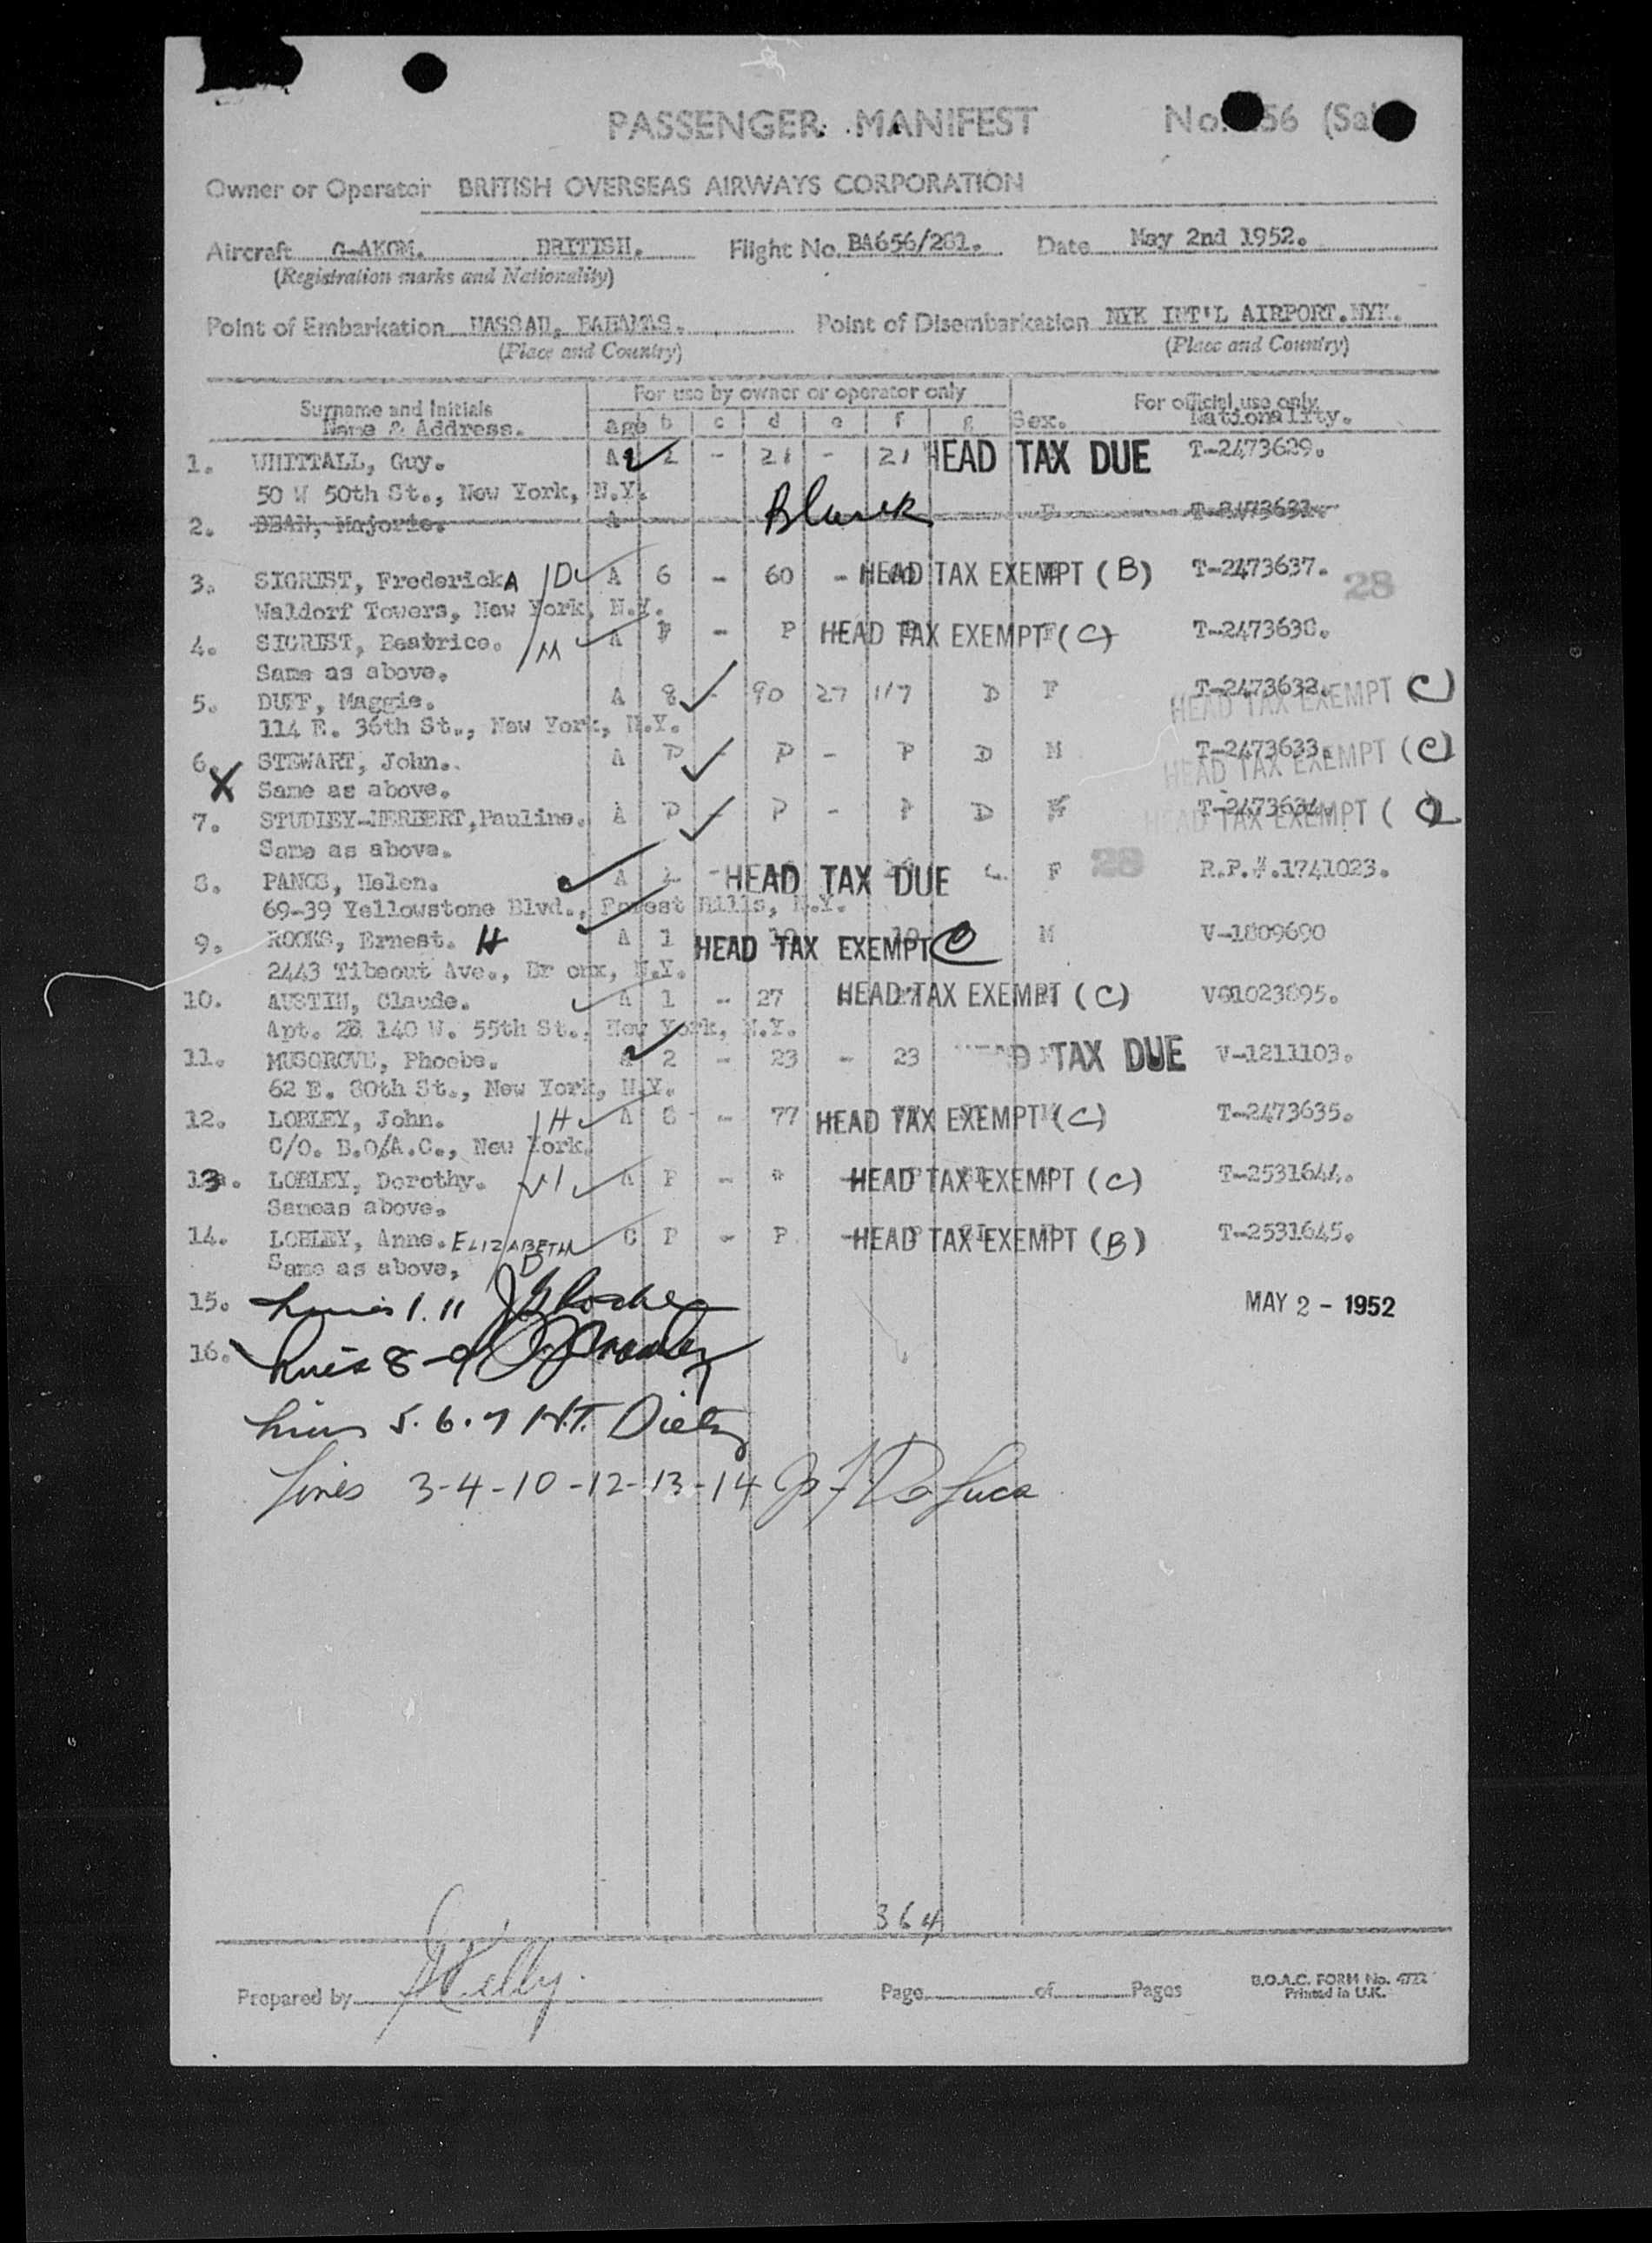 PASSENGER MANIFEST No. 56 (Sa
Owner or Operator BRITISH OVERSEAS AIRWAYS CORPORATION
Aircraft G-AKGM. BRITISH. Flight No. BA656/281. Date May 2nd 1952.
(Registration marks and Nationality)
Point of Embarkation NASSAU, BAHAMAS. Point of Disembarkation NYK INT'L AIRPORT.NYK.
(Place and Country) (Place and Country)
For use by owner or operator only
Surname and Initials For official use only
Name & Address. Age b c d e f g Sex. Nationality.
1. WHITTALL, Guy. A 2 - 21 - 21 HEAD TAX DUE T-2473629.
50 W 50th St., New York, N.Y.
2. DEAN, Majorie. A Blank F
3. SIGRIST, Frederick A D A 6 - 60 - HEAD TAX EXEMPT (B) T-2473637.
28
Waldorf Towers, New York, N.Y.
4. SIGRIST, Beatrice. M A P - P HEAD TAX EXEMPT (C) T-2473638.
Same as above.
5. DUFF, Maggie. A 8 - 90 27 117 D F T-2473632. HEAD TAX EXEMPT C)
114 E. 36th St., New York, N.Y.
6. STEWART, John. A P - P - P D M T-2473633. HEAD TAX EXEMPT (C)
X Same as above.
7. STUDLEY-HERBERT, Pauline. A P - P - P D F T-2473634. HEAD TAX EXEMPT (
Same as above.
8. PANOS, Helen. A - HEAD TAX DUE F 28 R.P.#.1741023.
69-39 Yellowstone Blvd., Forest Hills, N.Y.
9. ROOKS, Ernest. H A 1 HEAD TAX EXEMPT C M V-1809690
2443 Tibeout Ave., Br onx, N.Y.
10. AUSTIN, Claude. A 1 - 27 HEAD TAX EXEMPT (C) V01023895.
Apt. 2B 140 W. 55th St., New York, N.Y.
11. MUSGROVE, Phoebe. A 2 - 23 - 23 TAX DUE V-1211103.
62 E. 80th St., New York, N.Y.
12. LOBLEY, John. H A 8 - 77 HEAD TAX EXEMPT (C) T-2473635.
C/O. B.O/A.C., New York.
13. LOBLEY, Dorothy. A P - HEAD TAX EXEMPT (C) T-2531644.
Sameas above.
14. LOBLEY, Anne. ELIZABETH C P - P HEAD TAX EXEMPT (B) T-2531645.
Same as above, D
15. Lines 1.11 MAY 2 - 1952
16. Lines 8-9
Lines 5.6.7 H.T. Dietz
Lines 3-4-10-12-13-14 J F DeLuca
364
Prepared by Kelly. Page of Pages B.O.A.C. FORM No. 4722
Printed in U.K.